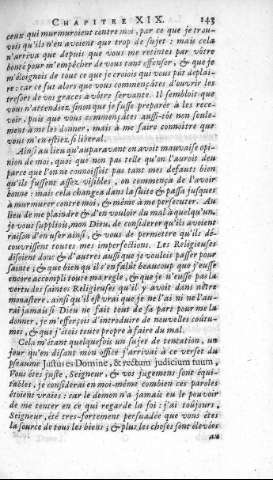 CHAPITRE XIX. 143
ceux qui murmuroient contre moi, par ce que je trou-
vois qu'ils n'en avoient que trop de sujet : mais cela
n'arriva que depuis que vous me retintes par vôtre
bonté pour m'empêcher de vous tant offenser, & que je
m'éloignois de tout ce que je croiois qui vous pût déplai-
re : car ce fut alors que vous commençâtes d'ouvrir les
tresors de vos graces à vôtre servante. Il sembloit que
vous n'attendiez, sinon que je fusse preparée à les rece-
voir, puis que vous commençâtes aussi-tôt non seule-
ment à me les donner, mais à me faire connoître que
vous m'en étiez si liberal.
Ainsi au lieu qu'auparavant on avoit mauvaise opi-
nion de moi, quoi que non pas telle qu'on l'auroit deu
parce que l'on ne connoissoit pas tant mes defauts bien
qu'ils fussent assez visibles, on commença de l'avoir
bonne : mais cela changea dans la suite & passa jusques
à murmurer contre moi, & même à me persecuter. Au
lieu de me plaindre & d'en vouloir du mal à quelqu'un,
je vous supplïois, mon Dieu, de considerer qu'ils avoient
raison d'en user ainsi, & vous de permettre qu'ils dé-
couvrissent toutes mes imperfections. Les Religieuses
disoient donc & d'autres aussi que je voulois passer pour
sainte ; & que bien qu'il s'en falût beaucoup que j'eusse
encore accompli toute ma regle, & que je n'eusse pas la
vertu des saintes Religieuses qu'il y avoit dans nôtre
monastere, ainsi qu'il est vrai que je ne l'ai ni ne l'au-
rai jamais si Dieu ne fait tout de sa part pour me la
donner, je m'efforçois d'introduire de nouvelles coûtu-
mes, & que j'étois toute propre à faire du mal.
Cela m'étant quelquefois un sujet de tentation, un
jour qu'en disant mon office j'arrivai à ce verset du
pseaume Justus es Domine, & rectum judicium tuum,
Vous êtes juste, Seigneur, & vos jugemens sont équi-
tables, je considerai en moi-même combien ces paroles
étoient vraies : car le demon n'a jamais eu le pouvoir
de me tenter en ce qui regarde la foi : j'ai toûjours,
Seigneur, été tres-fortement persuadée que vous êtes
la source de tous les biens ; & plus les choses sont élevées
au